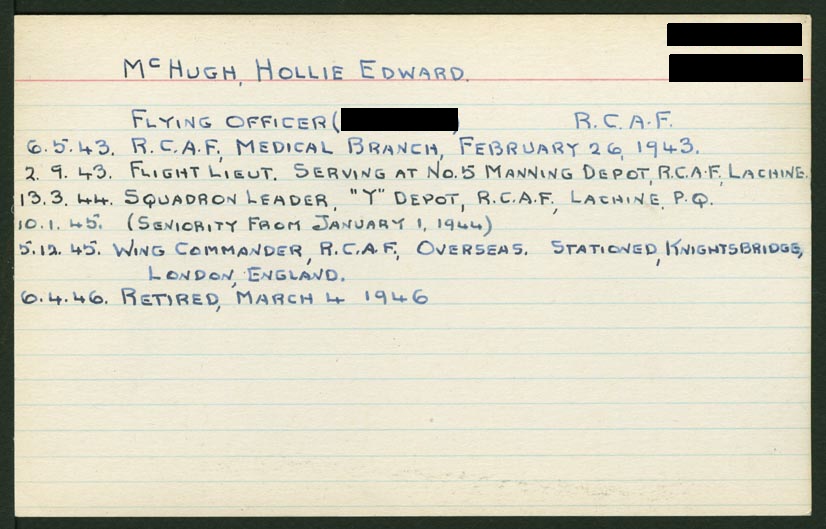 McHUGH, HOLLIE EDWARD.
FLYING OFFICER ( ) R.C.A.F.
6.5.43. R.C.A.F., MEDICAL BRANCH, FEBRUARY 26, 1943.
2.9.43. FLIGHT LIEUT. SERVING AT No.5 MANNING DEPOT, R.C.A.F., LACHINE.
13.3.44. SQUADRON LEADER, "Y" DEPOT, R.C.A.F., LACHINE, P.Q.
10.1.45. (SENIORITY FROM JANUARY 1, 1944)
5.12.45. WING COMMANDER, R.C.A.F., OVERSEAS. STATIONED, KNIGHTSBRIDGE,
LONDON, ENGLAND.
6.4.46. RETIRED, MARCH 4 1946